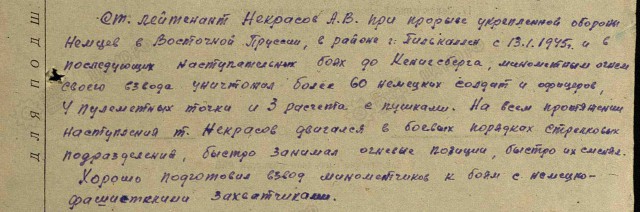 Ст. лейтенант Некрасов А.В. при прорыве укрепленной обороны
Немцев в Восточной Пруссии, в районе г. Пилькален с 13.1.1945г. и в
последующих наступательных боях до Кенигсберга, минометным огнем
своего взвода уничтожил более 60 немецких солдат и офицеров,
4 пулеметных точки и 3 расчета с пушками. На всем протяжении
наступления т. Некрасов двигался в боевых порядках стрелковых
подразделений, быстро занимал огневые позиции, быстро их сменял.
Хорошо подготовил взвод минометчиков к боям с немецко-
фашисткими захватчиками.
ДЛЯ ПОДШ